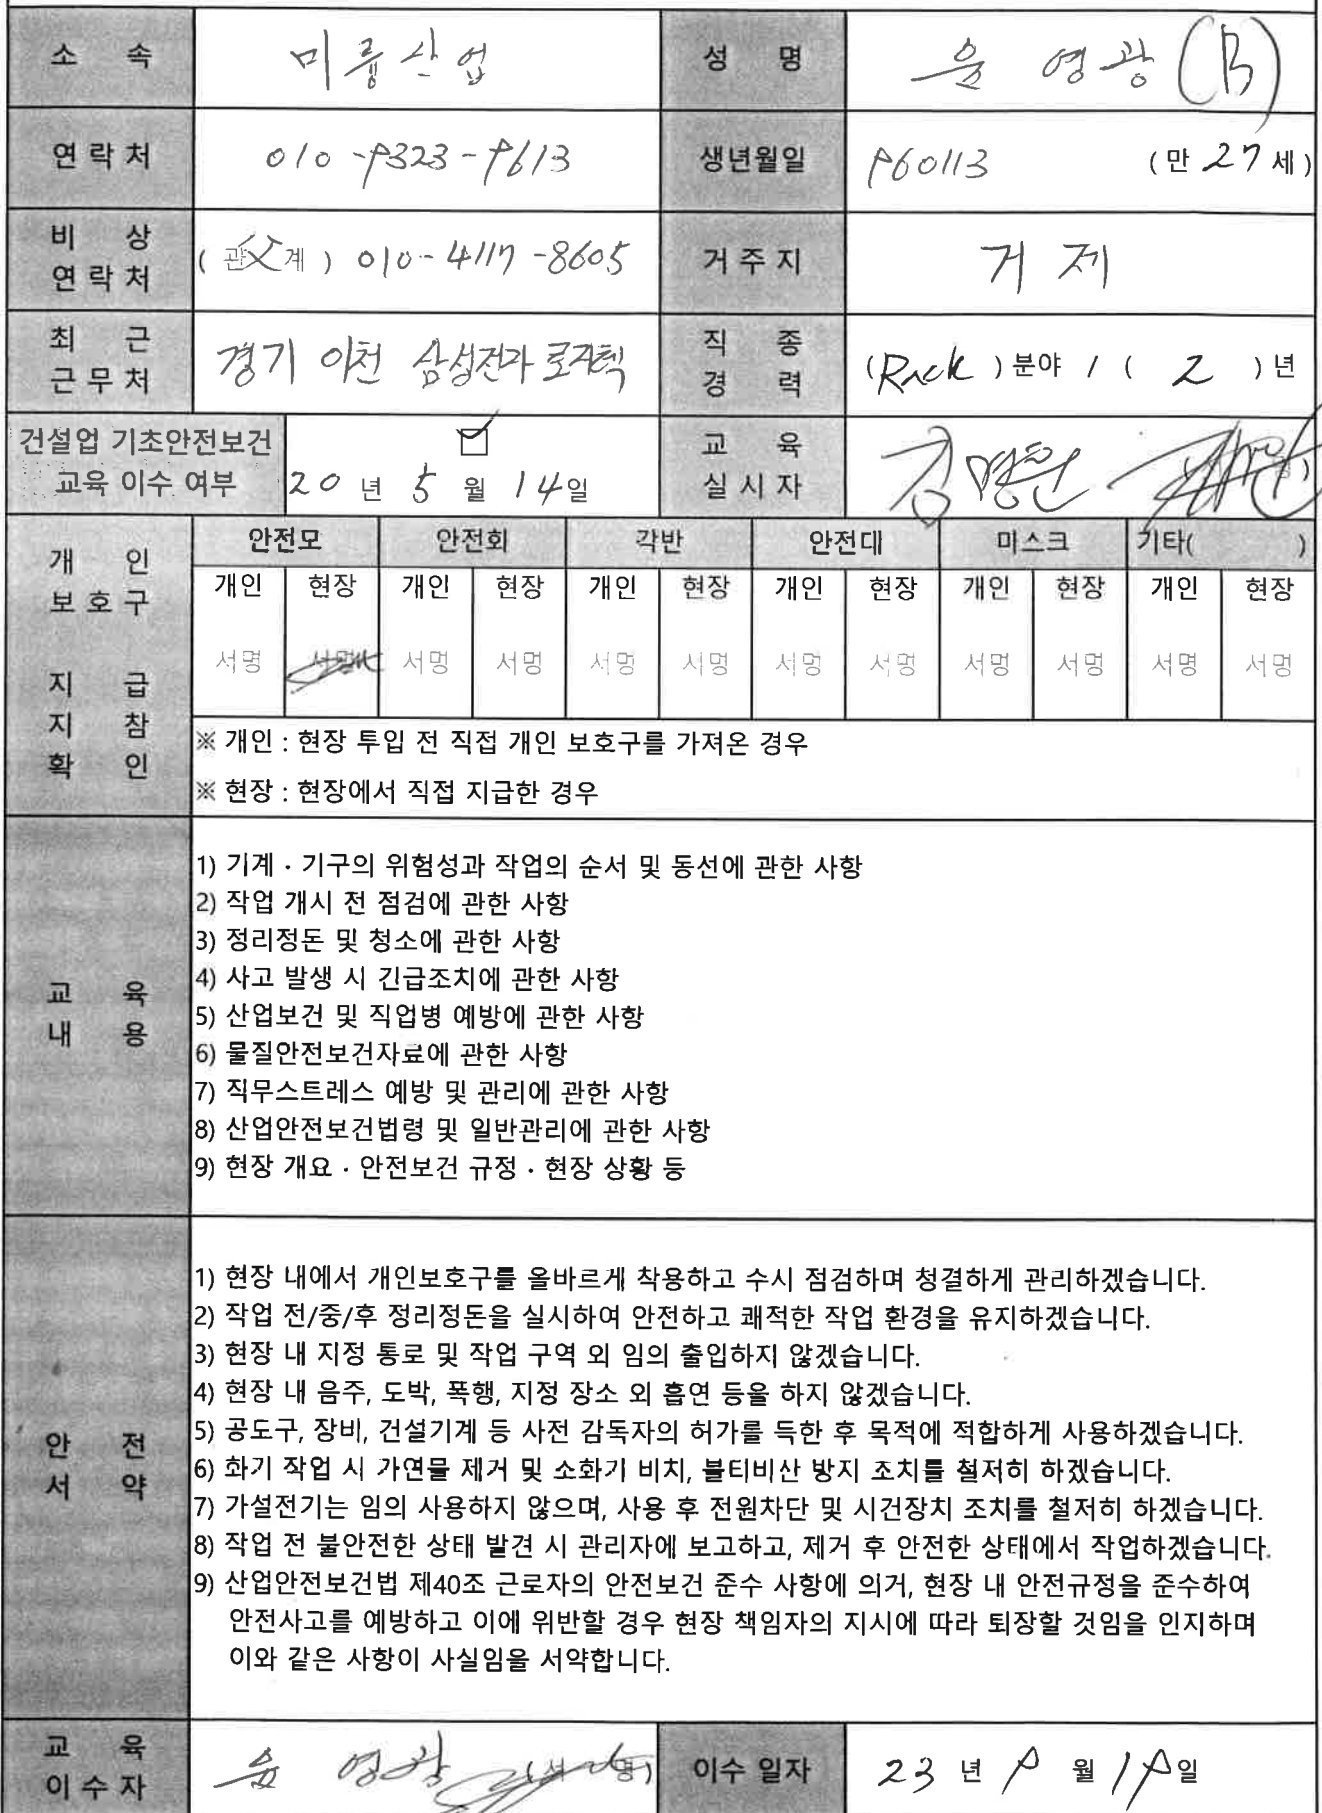 소 속 미룡산업 성 명 윤 영광 (B)
연 락 처 010-9323-9613 생년월일 960113 (만 27 세)
비 상
연 락 처 (관父계) 010-4117-8605 거 주 지 거제
최 근
근 무 처 경기 이천 삼성전자 로지텍 직 종
경 력 (Rack) 분야 / ( 2 ) 년
건설업 기초안전보건
교육 이수 여부 20 년 5 월 14일 교 육
실 시 자 김명원
개 인
보 호 구
지 급
지 참
확 인
안전모 안전화 각반 안전대 미스크 기타( )
개인 현장 개인 현장 개인 현장 개인 현장 개인 현장 개인 현장
서명 서명 서명 서명 서명 서명 서명 서명 서명 서명 서명 서명
※ 개인 : 현장 투입 전 직접 개인 보호구를 가져온 경우
※ 현장 : 현장에서 직접 지급한 경우
교 육
내 용
1) 기계 · 기구의 위험성과 작업의 순서 및 동선에 관한 사항
2) 작업 개시 전 점검에 관한 사항
3) 정리정돈 및 청소에 관한 사항
4) 사고 발생 시 긴급조치에 관한 사항
5) 산업보건 및 직업병 예방에 관한 사항
6) 물질안전보건자료에 관한 사항
7) 직무스트레스 예방 및 관리에 관한 사항
8) 산업안전보건법령 및 일반관리에 관한 사항
9) 현장 개요 · 안전보건 규정 · 현장 상황 등
안 전
서 약
1) 현장 내에서 개인보호구를 올바르게 착용하고 수시 점검하며 청결하게 관리하겠습니다.
2) 작업 전/중/후 정리정돈을 실시하여 안전하고 쾌적한 작업 환경을 유지하겠습니다.
3) 현장 내 지정 통로 및 작업 구역 외 임의 출입하지 않겠습니다.
4) 현장 내 음주, 도박, 폭행, 지정 장소 외 흡연 등을 하지 않겠습니다.
5) 공도구, 장비, 건설기계 등 사전 감독자의 허가를 득한 후 목적에 적합하게 사용하겠습니다.
6) 화기 작업 시 가연물 제거 및 소화기 비치, 불티비산 방지 조치를 철저히 하겠습니다.
7) 가설전기는 임의 사용하지 않으며, 사용 후 전원차단 및 시건장치 조치를 철저히 하겠습니다.
8) 작업 전 불안전한 상태 발견 시 관리자에 보고하고, 제거 후 안전한 상태에서 작업하겠습니다.
9) 산업안전보건법 제40조 근로자의 안전보건 준수 사항에 의거, 현장 내 안전규정을 준수하여
안전사고를 예방하고 이에 위반할 경우 현장 책임자의 지시에 따라 퇴장할 것임을 인지하며
이와 같은 사항이 사실임을 서약합니다.
교 육
이 수 자 윤 영광 (서 명) 이수 일자 23 년 9 월 19일